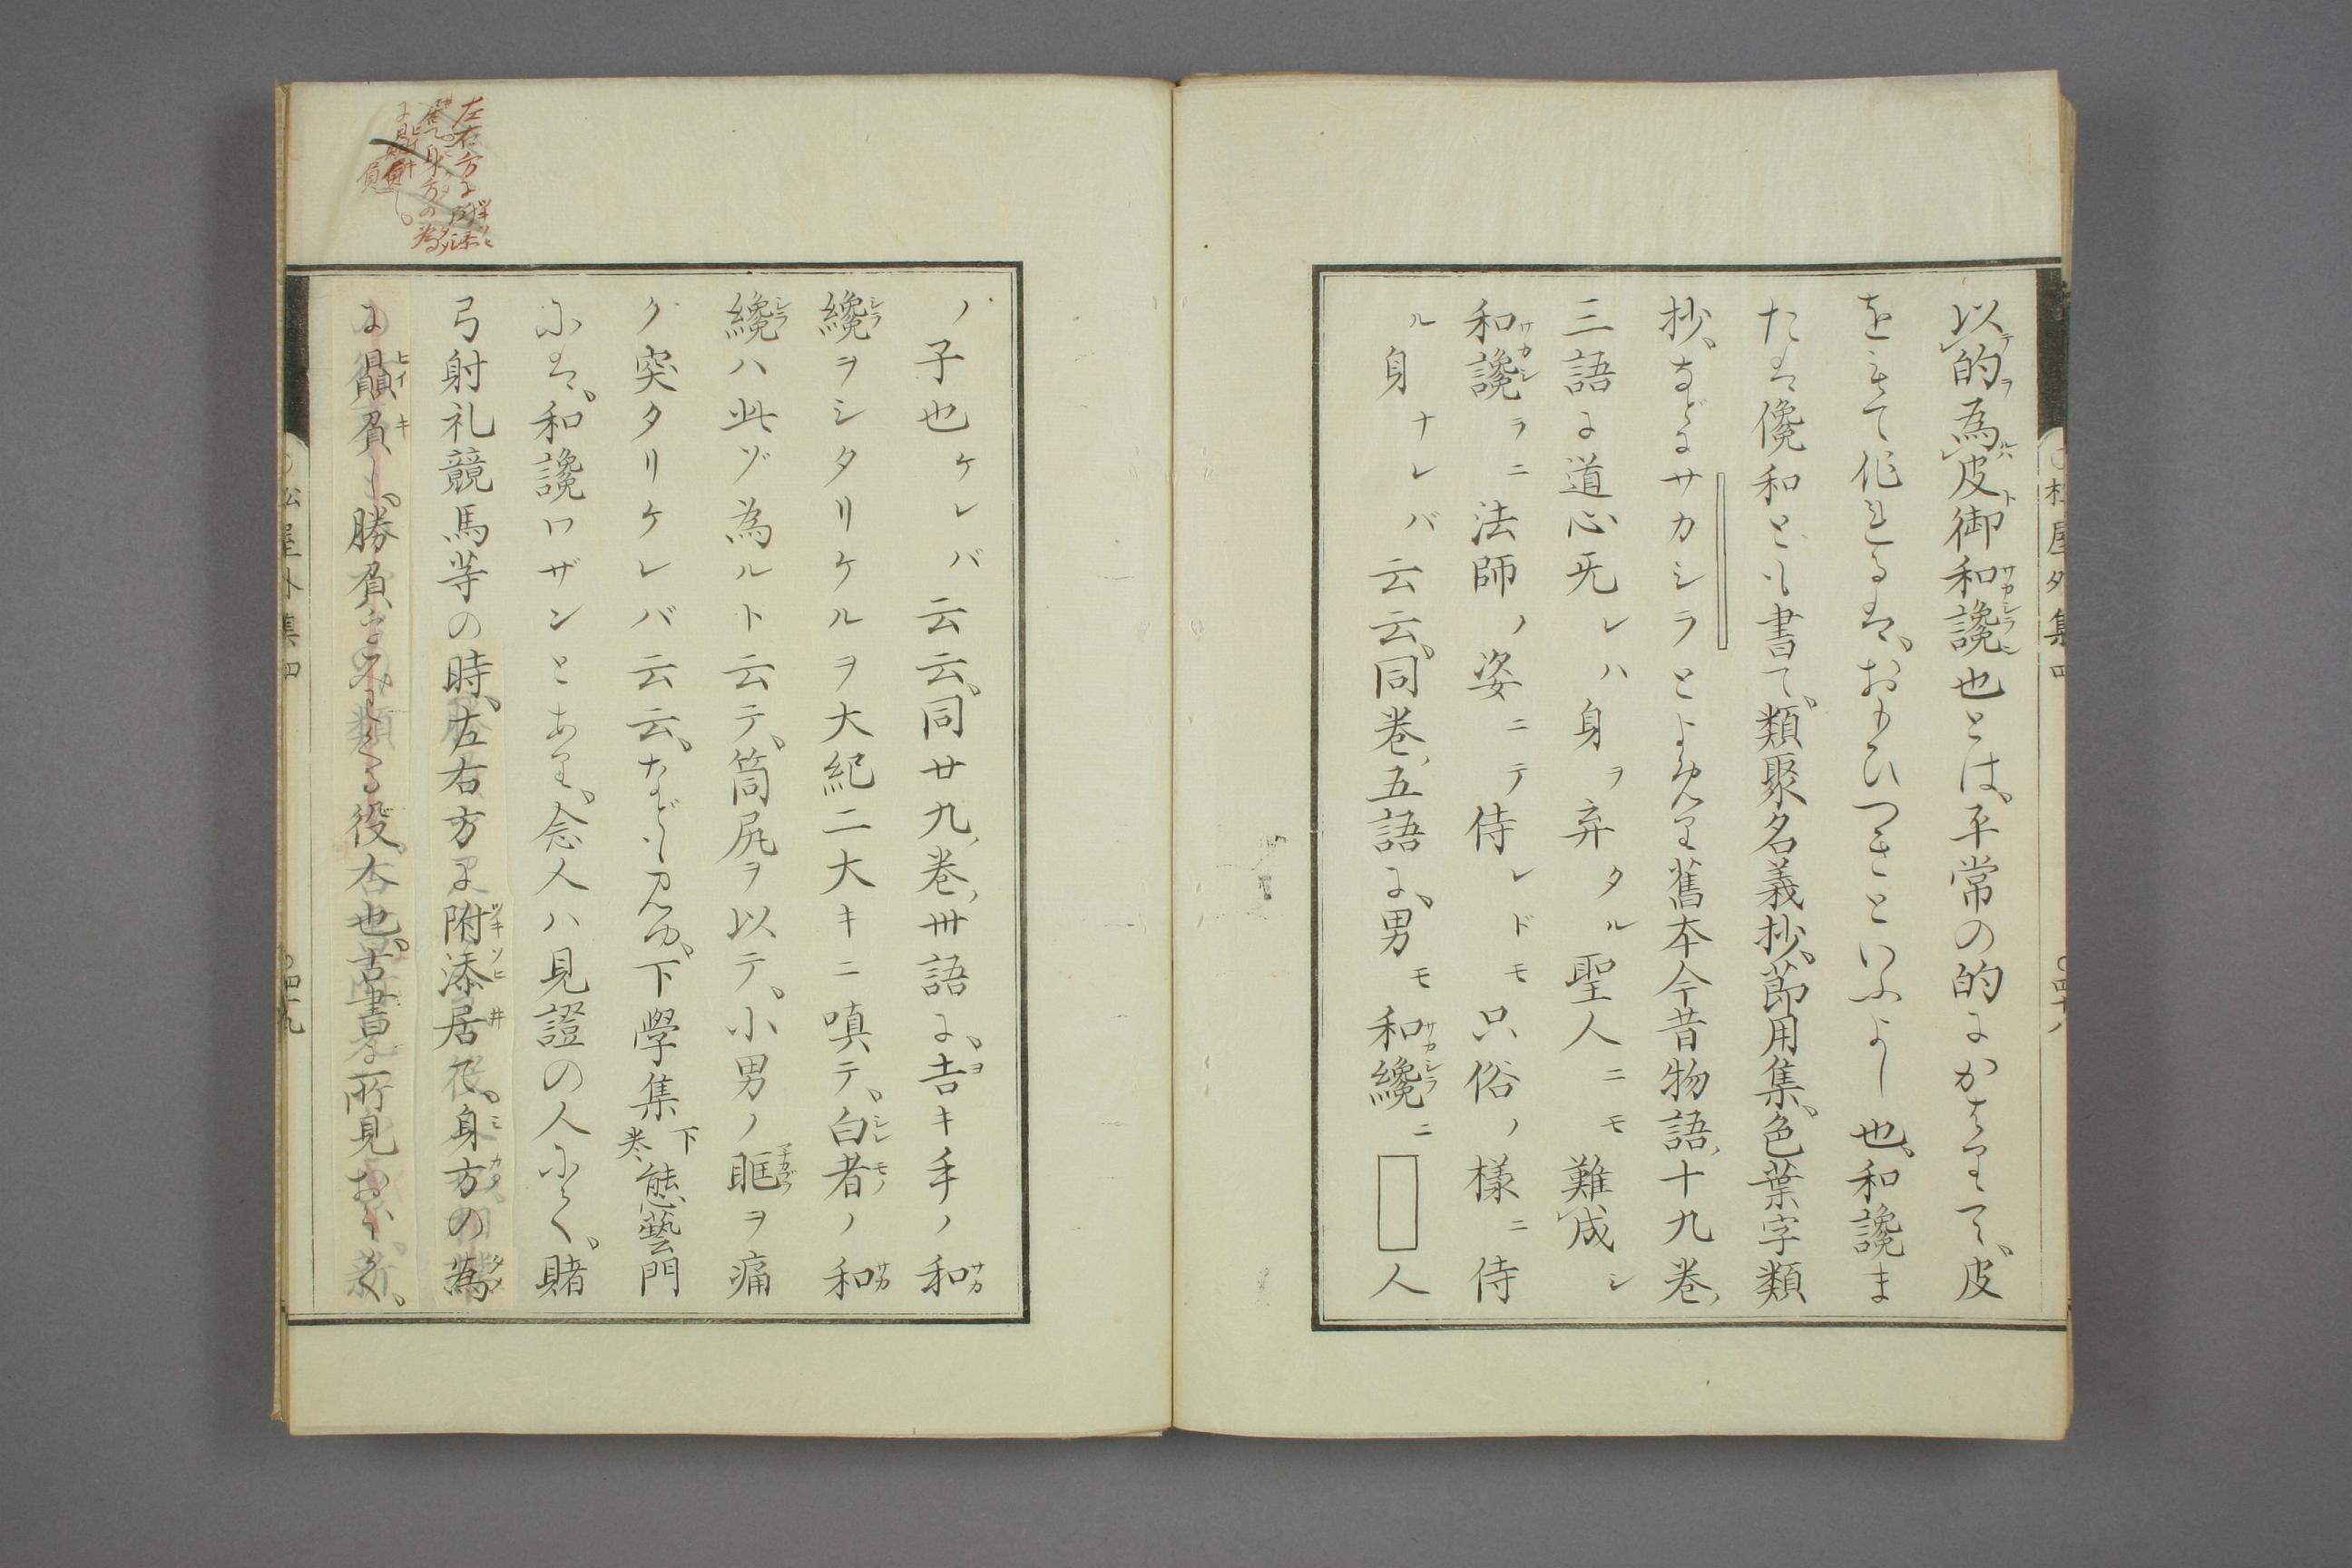 以的為皮御和讒也とは、平常の的にかはりて、皮
をもて作れるは、おもひつきといふよし也、和讒ま
たは儳和とも書て、類聚名義抄、節用集、色葉字類
抄、などにサカシラとよめり舊本今昔物語、十九巻、
三語に道心旡レハ身ヲ弃タル聖人ニモ難成シ
和讒ラニ法師ノ姿ニテ侍レドモ只俗ノ様ニ侍
ル身ナレバ云云、同巻、五語に、男モ和纔ニ人
ノ子也ケレバ云云、同廿九、巻、卅語に、吉キ手ノ和
纔ヲシタリケルヲ大紀二大キニ嗔テ、白者ノ和
纔ハ此ゾ為ルト云テ、筒尻ヲ以テ、小男ノ眶ヲ痛
ク突タリケレバ云云、なども見ゆ、下學集下巻態藝門
には、和讒ワザンとあり、念人ハ見證の人にて、賭
弓射礼競馬等の時、左右方に附添居、身方の為
に贔負し、勝負を役、也、古書に所見おほく、
左右方に附添
居て身方の為
に贔負し、
松屋外集四